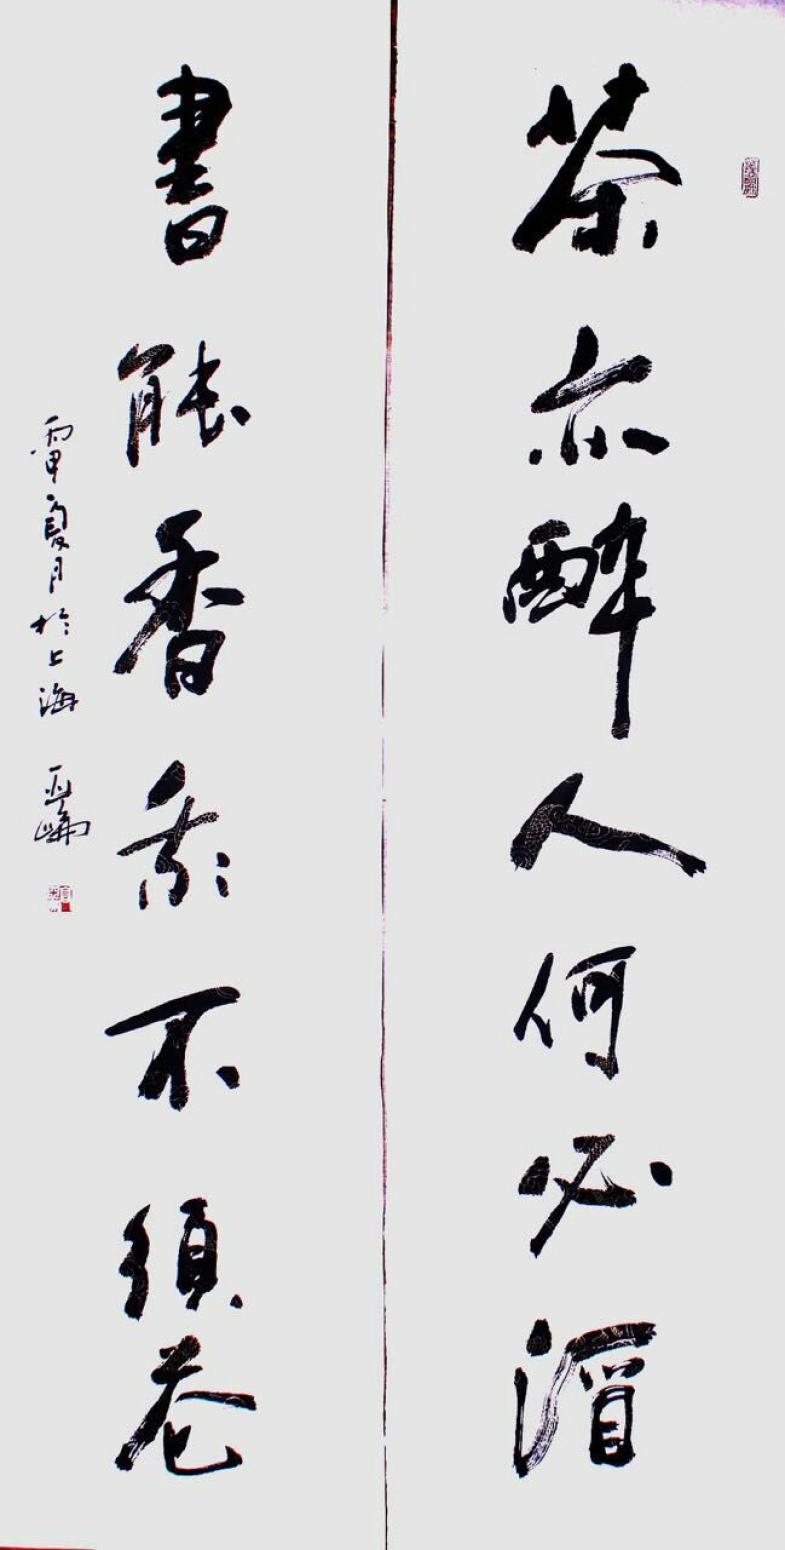 茶亦醉人何必酒
書能香我不須花
丙申夏月於上海